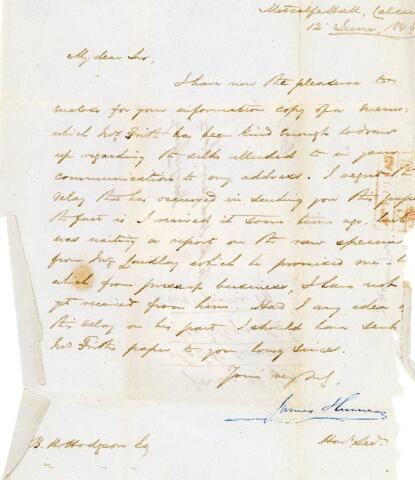 Metcalfe Hall, Calcu
12 June, 184
My dear Sir,
I have now the pleasure to
enclose for your information copy of a memo:
which Mr Frith has been kind enough to draw
up regarding the silks alluded to in your
communication to my address. I regret the
delay that has occurred in sending you this paper
the fact is I received it some time ago, but
was waiting a report on the raw specimen
from Mr which he promised me &
which from press of business, I have not
yet received from him. Had I any idea
this delay on his part I should have sent
Mr Frith's paper to you long since.
Yours very truly,
James Hume
B. H. Hodgson Esq
Hony Secy.